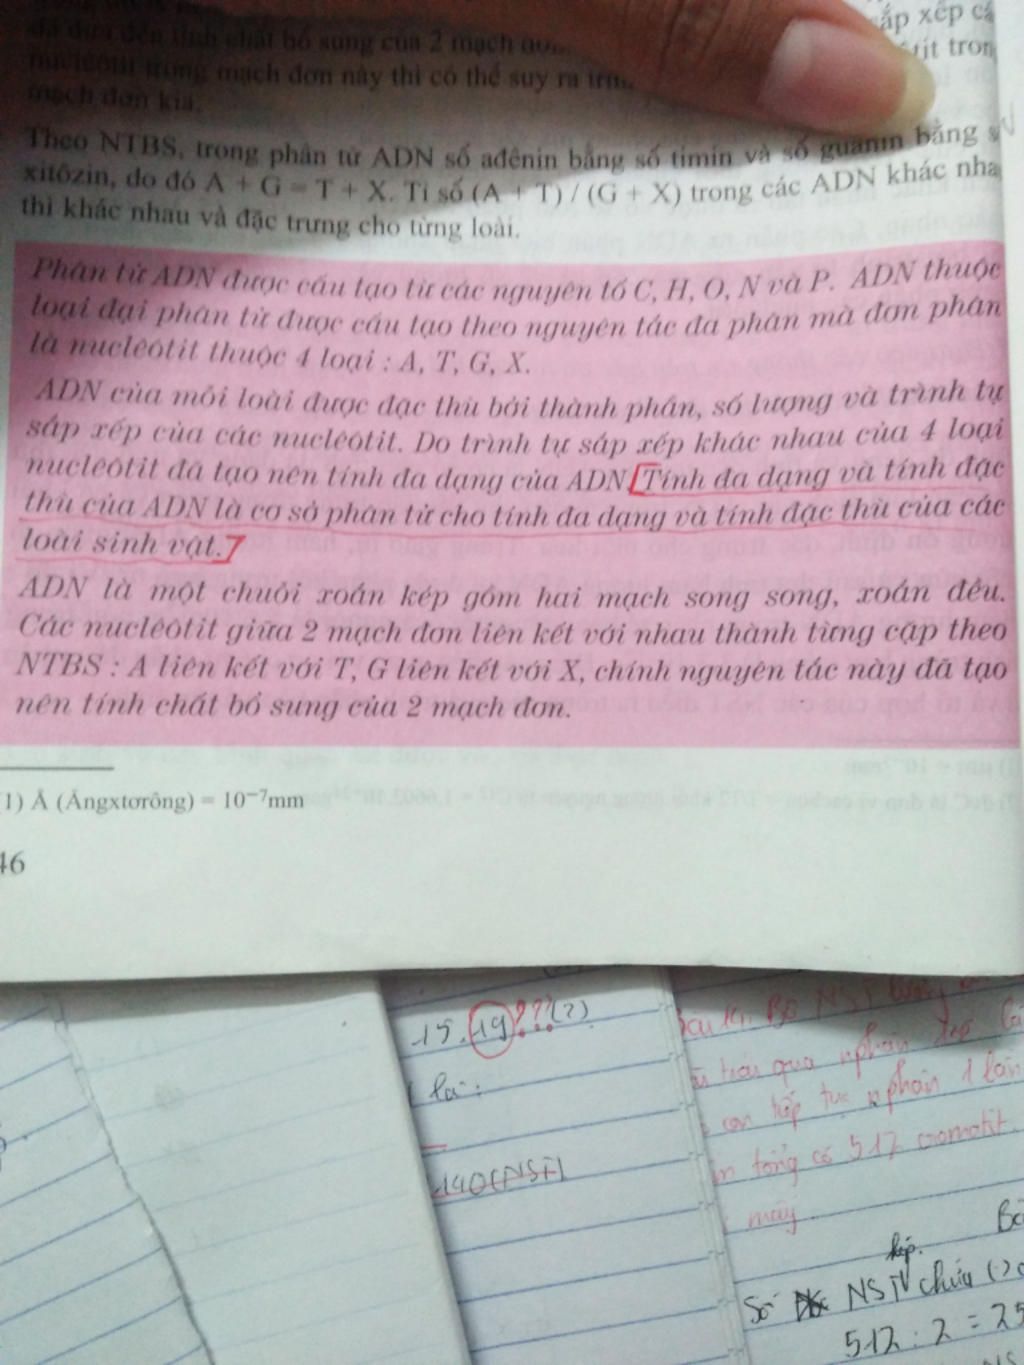 ắp xếp cá
đã đưa đến tính chất bổ sung của 2 mạch đơn.
nuclêôtit trong mạch đơn này thì có thể suy ra
mạch đơn kia.
Theo NTBS, trong phân tử ADN số ađênin bằng số timin và số guanin bằng s
xitôzin, do đó A + G = T + X. Tỉ số (A + T) / (G + X) trong các ADN khác nha
thì khác nhau và đặc trưng cho từng loài.
Phân tử ADN được cấu tạo từ các nguyên tố C, H, O, N và P. ADN thuộc
loại đại phân tử được cấu tạo theo nguyên tắc đa phân mà đơn phân
là nuclêôtit thuộc 4 loại : A, T, G, X.
ADN của mỗi loài được đặc thù bởi thành phần, số lượng và trình tự
sắp xếp của các nuclêôtit. Do trình tự sắp xếp khác nhau của 4 loại
nuclêôtit đã tạo nên tính đa dạng của ADN. Tính đa dạng và tính đặc
thù của ADN là cơ sở phân tử cho tính đa dạng và tính đặc thù của các
loài sinh vật.
ADN là một chuỗi xoắn kép gồm hai mạch song song, xoắn đều.
Các nuclêôtit giữa 2 mạch đơn liên kết với nhau thành từng cặp theo
NTBS : A liên kết với T, G liên kết với X, chính nguyên tắc này đã tạo
nên tính chất bổ sung của 2 mạch đơn.
1) Å (Ăngxtơrông) = 10⁻⁷mm
46
15.19???(2)
là :
140(NST)
Bộ NST lưỡng
qua nphân liên
con tiếp tục nphân 1 lần
tổng có 512 cromatit.
mấy
kép.
Số NST chứa
512 : 2 = 25